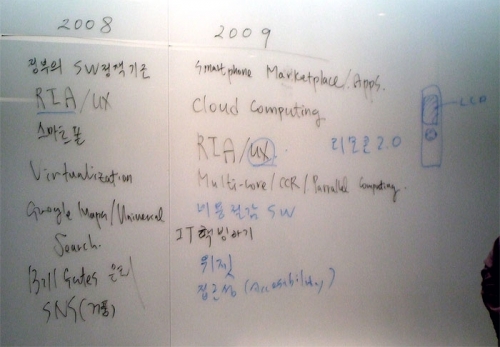 2008
정부의 SW정책기조
RIA/UX
스마트폰
Virtualization
Google Maps/Universal
Search.
Bill Gates 은퇴
SNS(거품)
2009
Smartphone Marketplace/Apps.
Cloud Computing
RIA/UX.
리모콘 2.0
LCD
Multi-core/CCR/Parallel Computing.
비용절감 SW
IT 햌빙하기
위젯
접근성(Accessibility)